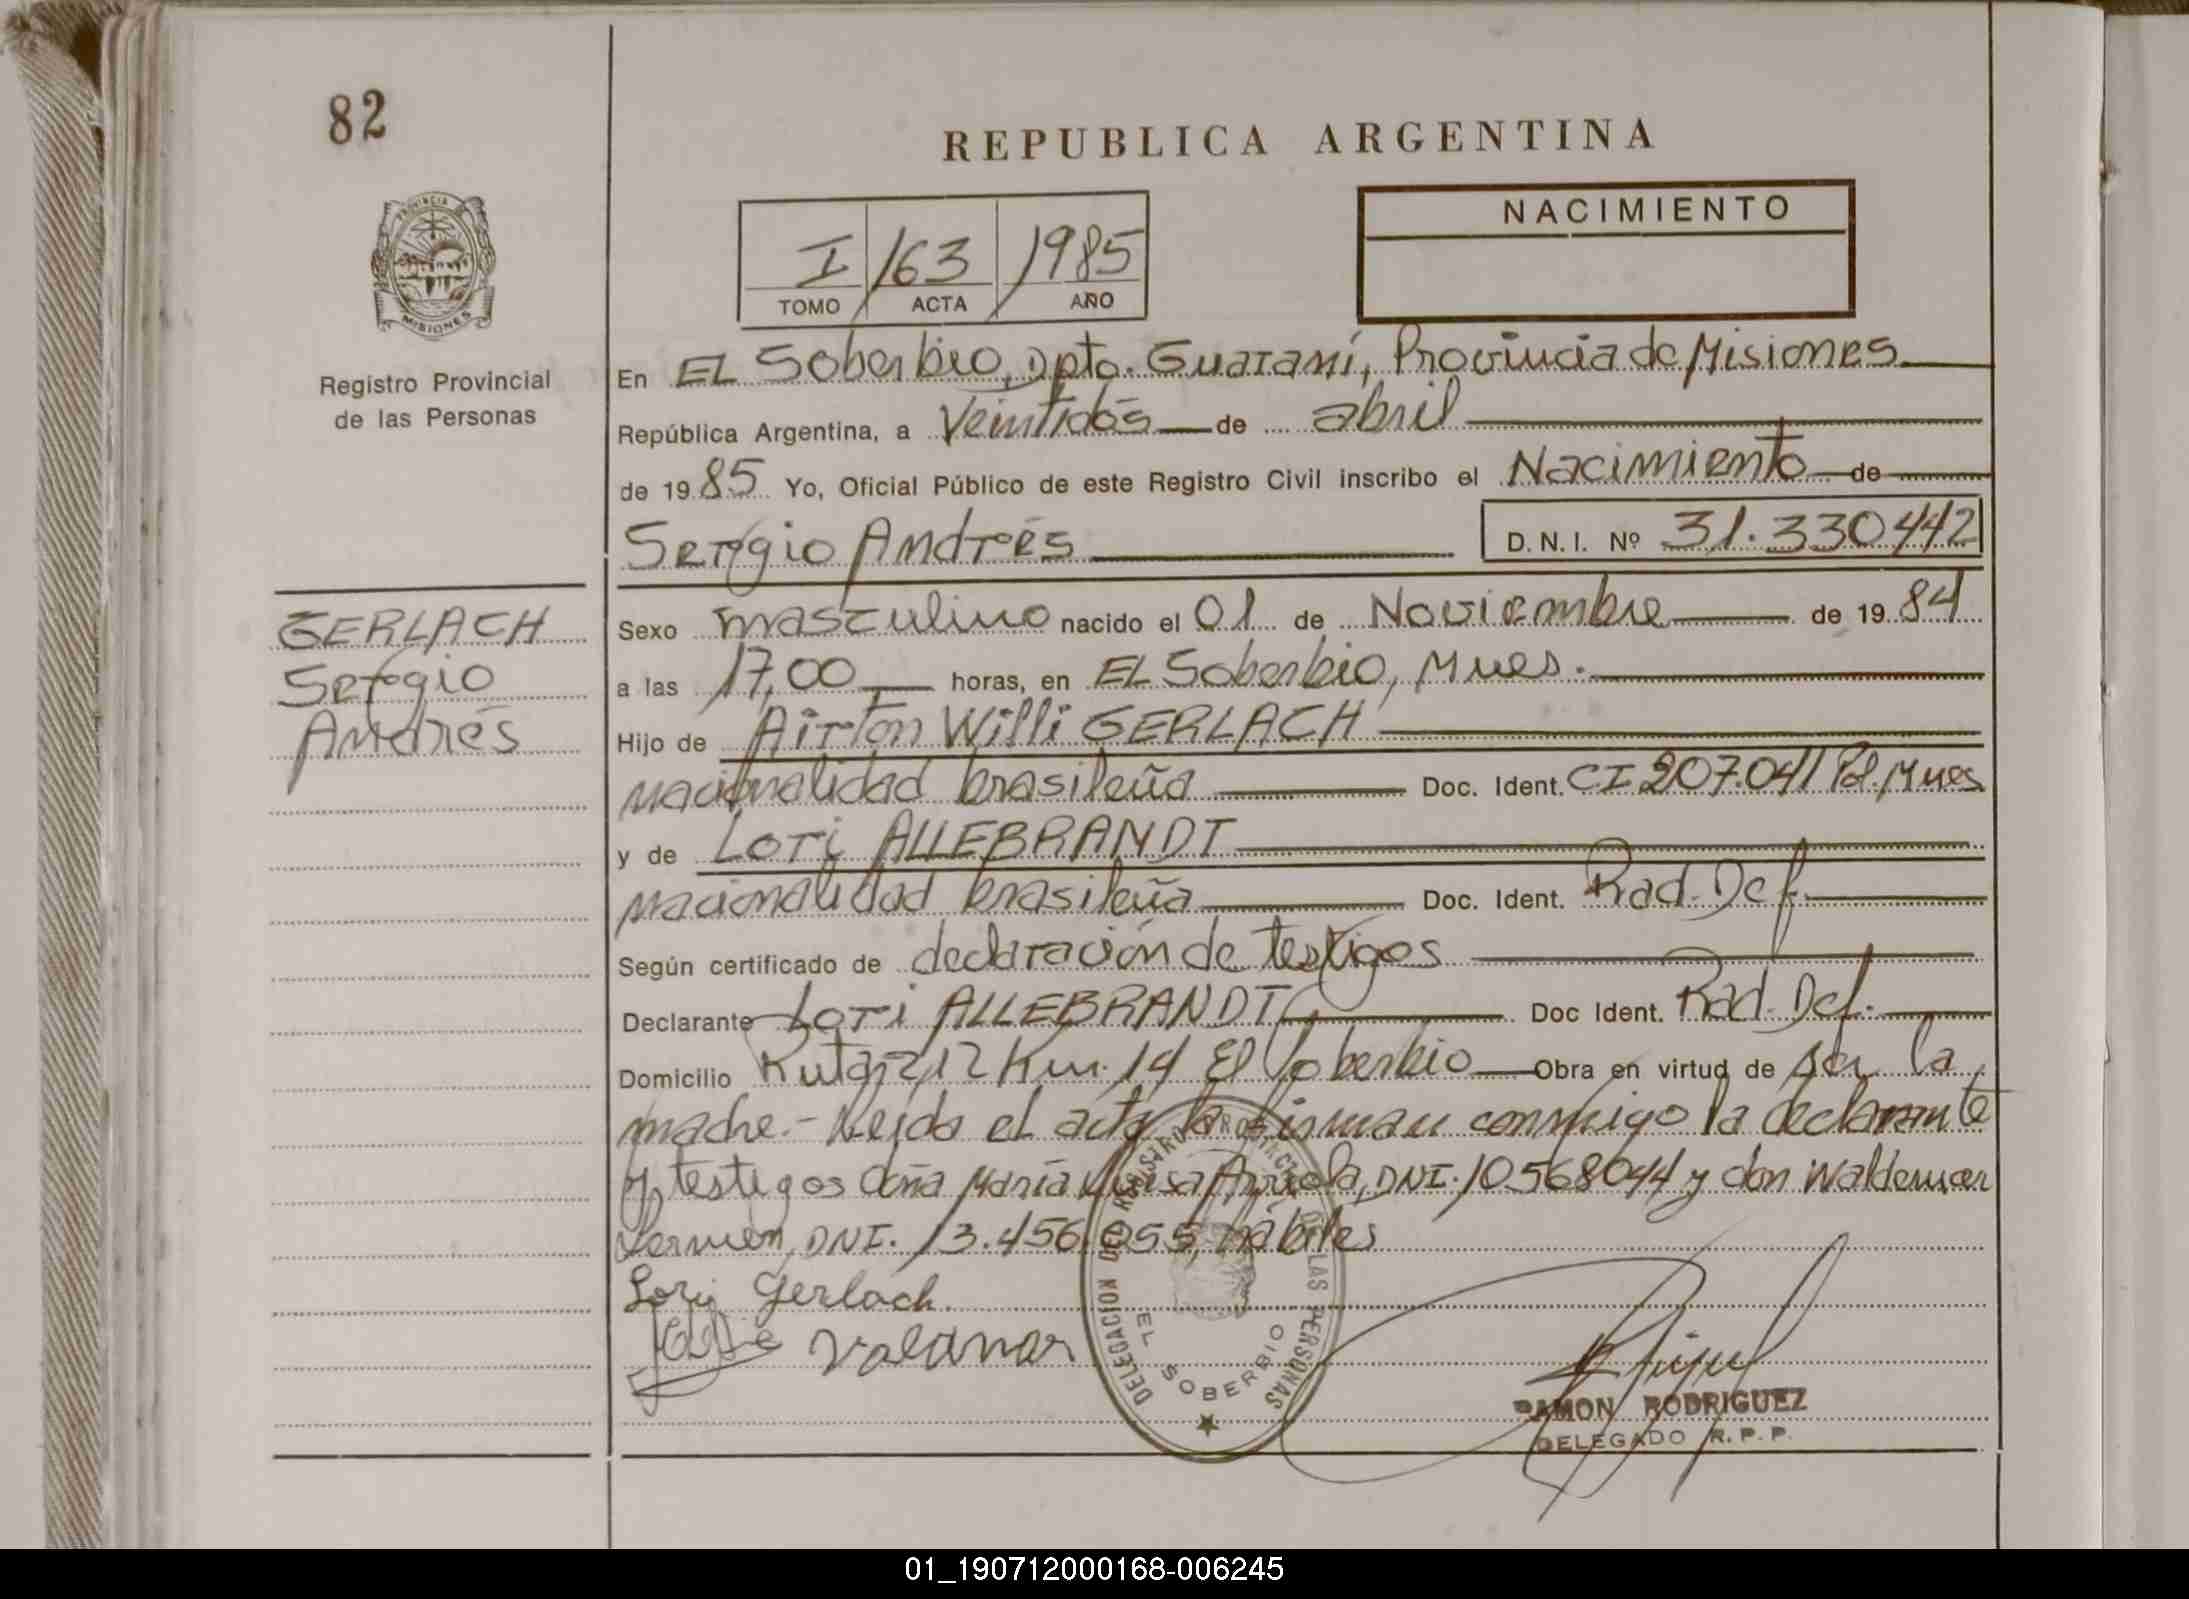 82
REPUBLICA ARGENTINA
PROVINCIA
MISIONES
Registro Provincial
de las Personas
I 163 1985
TOMO ACTA AÑO
NACIMIENTO
En EL Soberbio, Dpto. Guaraní, Provincia de Misiones
República Argentina, a Veintidós de abril
de 1985 Yo, Oficial Público de este Registro Civil inscribo el Nacimiento de
Sergio Andrés D.N.I. Nº 31.330442
GERLACH
Sergio
Andrés
Sexo masculino nacido el 01 de Noviembre de 1984
a las 17,00 horas, en EL Soberbio, Mnes.
Hijo de Airton Willi GERLACH
nacionalidad brasileña Doc. Ident. CI 207.041 Pol. Mnes
y de Lori ALLEBRANDT
nacionalidad brasileña Doc. Ident. Rad. Def.
Según certificado de declaración de testigos
Declarante Lori ALLEBRANDT Doc Ident. Rad. Def.
Domicilio Ruta 212 Km. 14 El Soberbio Obra en virtud de ser la
madre.- Leída el acta la firman conmigo la declarante
y testigos doña María Luisa Arriola, DNI. 10568044 y don Waldemar
DNI. 13.456.055, hábiles
Lori Gerlach.
Valdmar
DELEGACION DEL REGISTRO PROVINCIAL DE LAS PERSONAS
EL SOBERBIO
RAMON RODRIGUEZ
DELEGADO R.P.P.
01_190712000168-006245